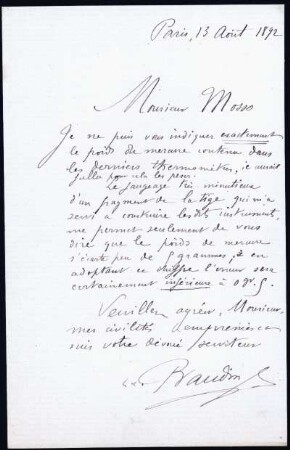 Paris, 13 Août 1892
Monsieur Mosso
Je ne puis vous indiquer exactement
le poids de mercure contenu dans
les derniers thermomètres, il aurait
fallu pour cela les peser.
Le jaugeage très minutieux
d'un fragment de la tige qui m'a
servi à construire les dits instruments,
me permet seulement de vous
dire que le poids de mercure
s'écarte peu de 5 grammes, et en
adoptant ce chiffre l'erreur sera
certainement inférieure à 0gr.5.
Veuillez agréer, Monsieur,
mes civilités empressées
suis votre dévoué serviteur
Baudin